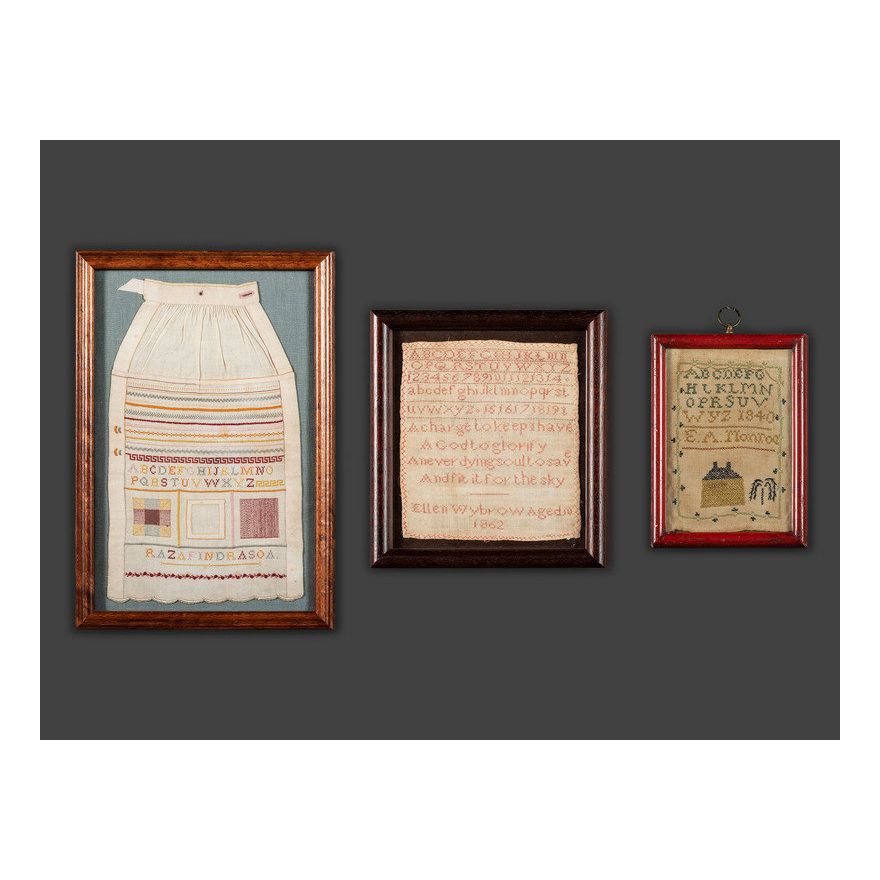 ABCDEFGHIJKLMNO
PQRSTUVWXYZ
RAZAFINDRASOA.
ABCDEFGHIJKLMN
OPQRSTUVWXYZ
1234567891011121314
abcdefghijklmnopqrst
uvwxyz 1516171819
A charge to keep i have
A God to glorify
A never dying soul to save
And fit it for the sky
Ellen Wybrow Aged
1862
ABCDEFG
HIKLMN
OPRSUV
WYZ 1840
E.A. Monroe